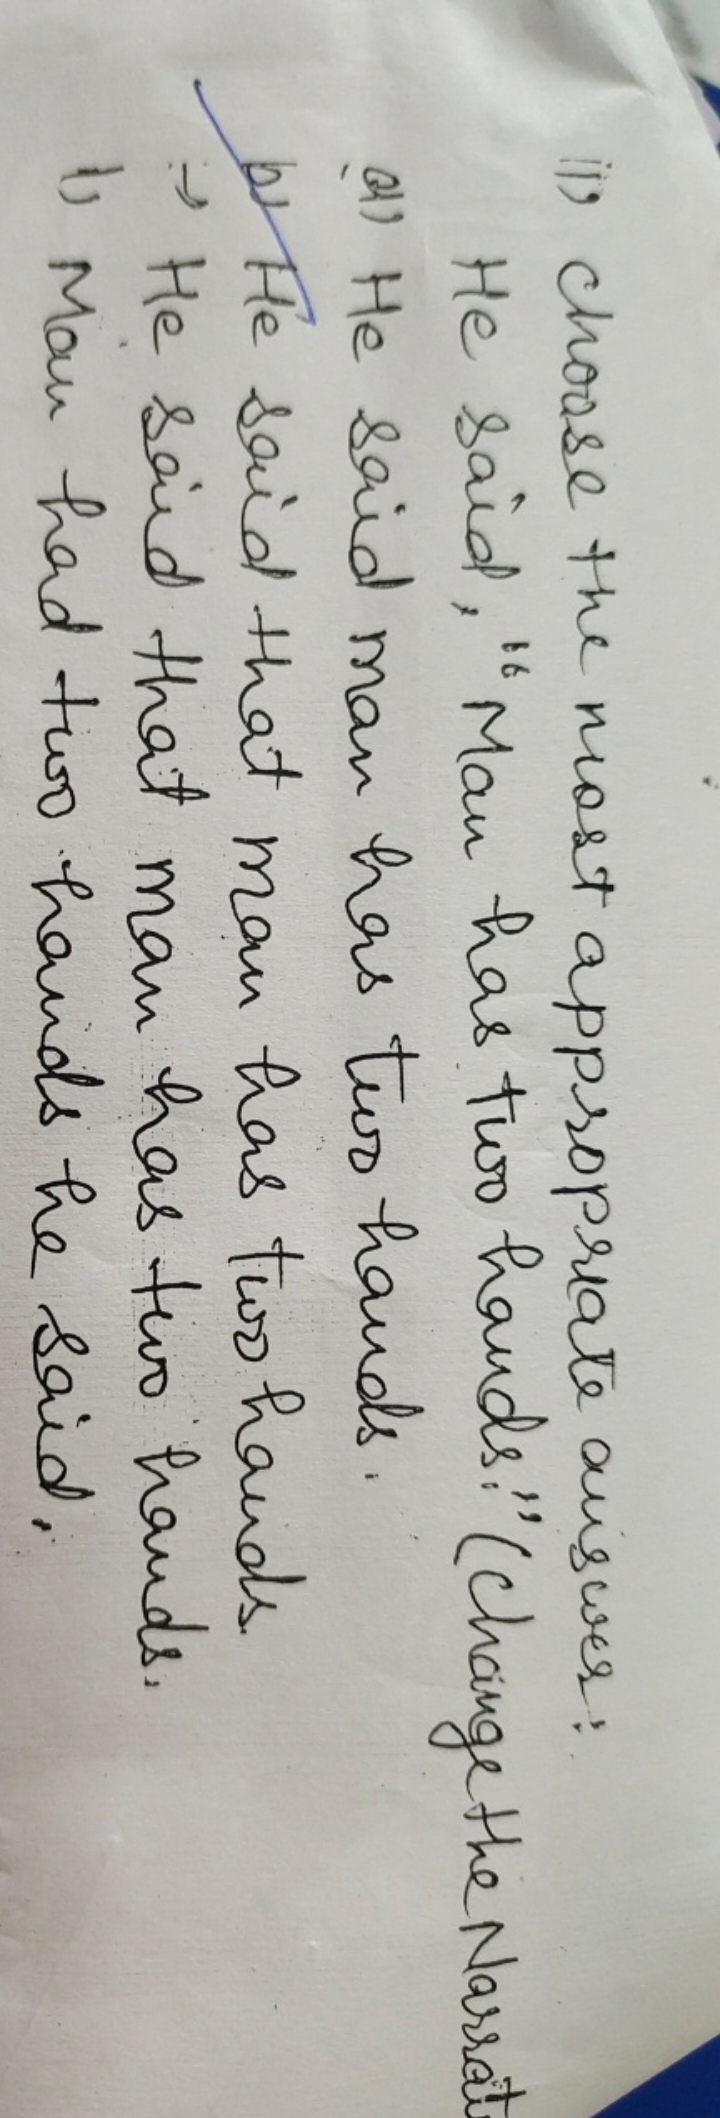 ii) choose the most appropriate answer:
He said, "Man has two hands." (Change the Narrat
a) He said man has two hands.
b) He said that man has two hands.
He said that man has two hands.
Man had two hands he said.